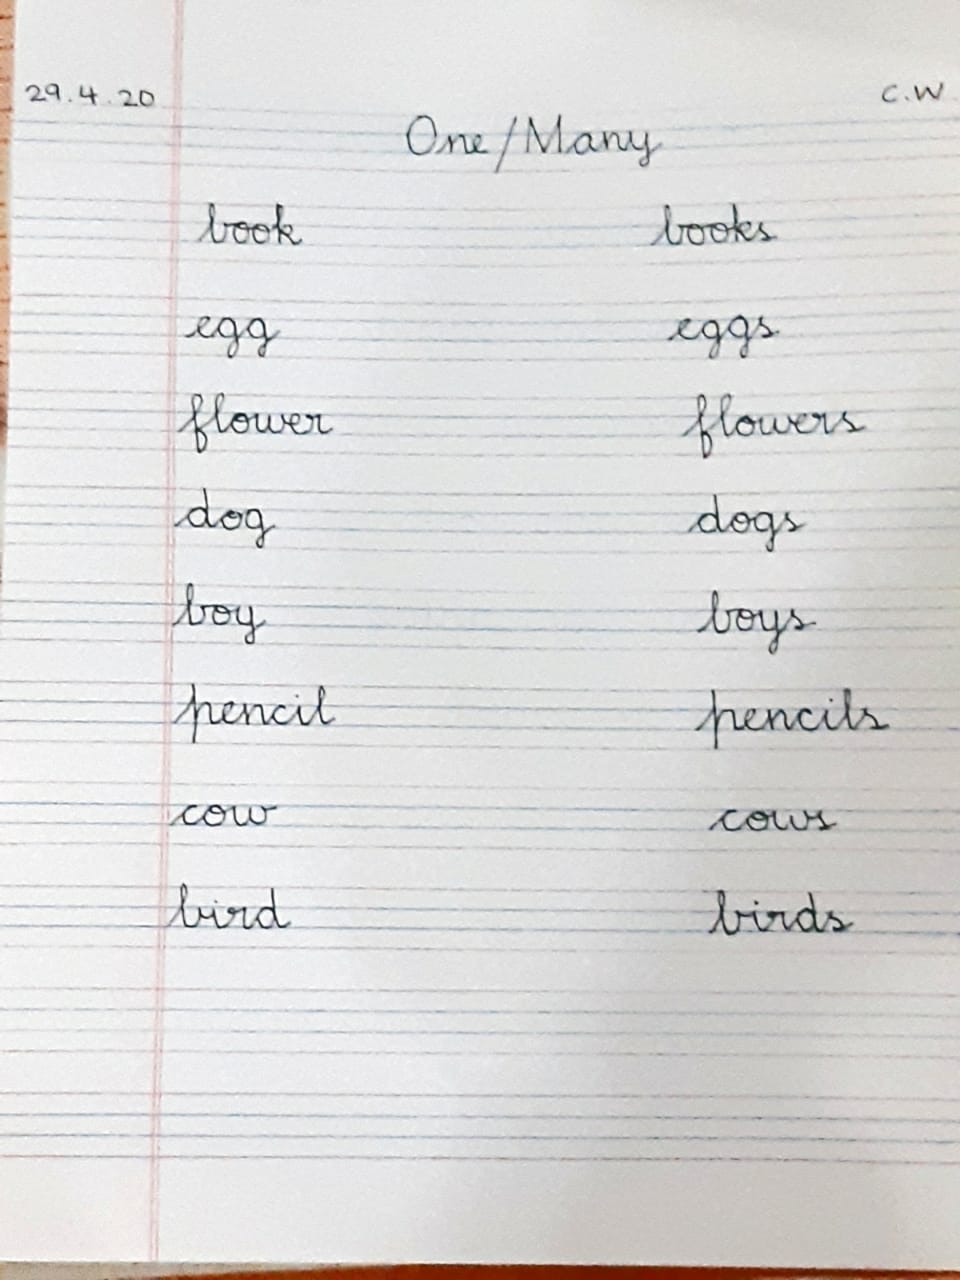 29.4.20 C.W
One/Many
book books
egg eggs
flower flowers
dog dogs
boy boys
pencil pencils
cow cows
bird birds